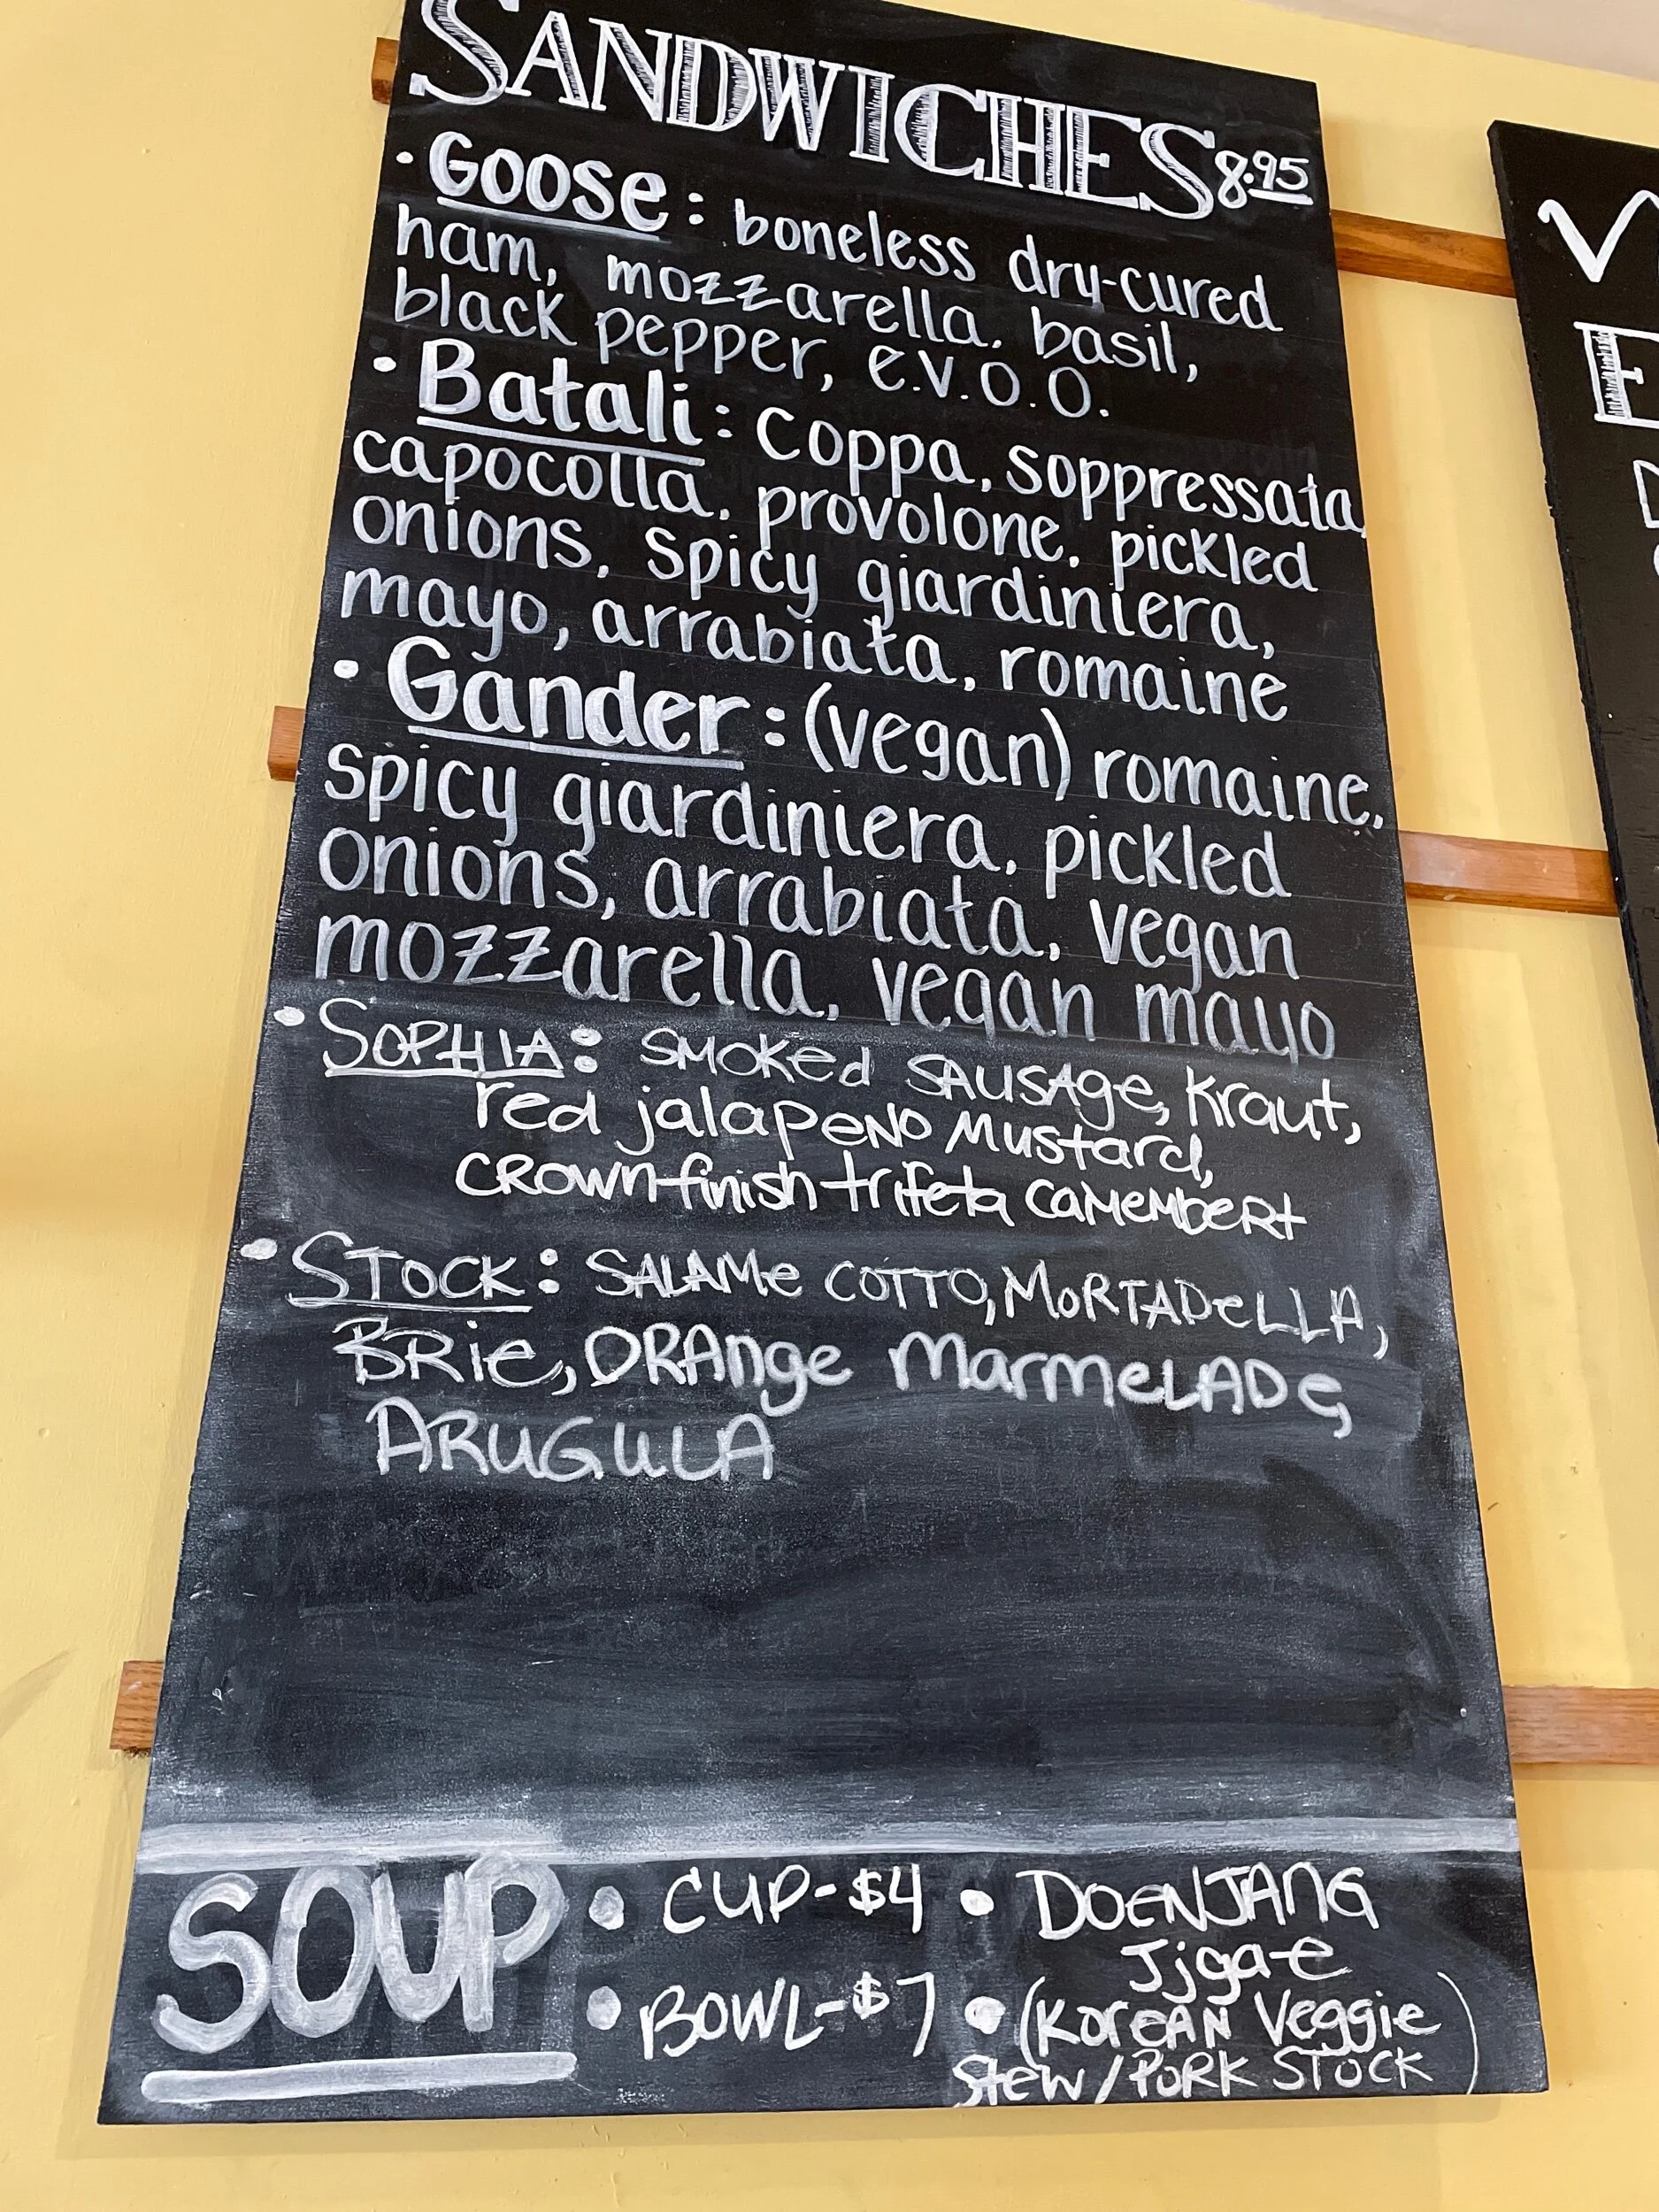 SANDWICHES 8.95
• Goose: boneless dry-cured
ham, mozzarella, basil,
black pepper, e.v.o.o.
• Batali: coppa, soppressata,
capocolla, provolone, pickled
onions, spicy giardiniera,
mayo, arrabiata, romaine
• Gander: (vegan) romaine,
spicy giardiniera, pickled
onions, arrabiata, vegan
mozzarella, vegan mayo
• SOPHIA: SMOKed SAUSAge, Kraut,
red jalapeNo Mustard,
CROWN finish trifeta CaMeMbeRt
• STOCK: SALAMe COTTO, MORTADeLLA,
BRie, ORANge MarmeLADe,
ARUGULA
SOUP
• CUP-$4
• BOWL-$7
• DOENJANG
Jjgae
• (KoreAN Veggie
Stew/PORK STOCK)